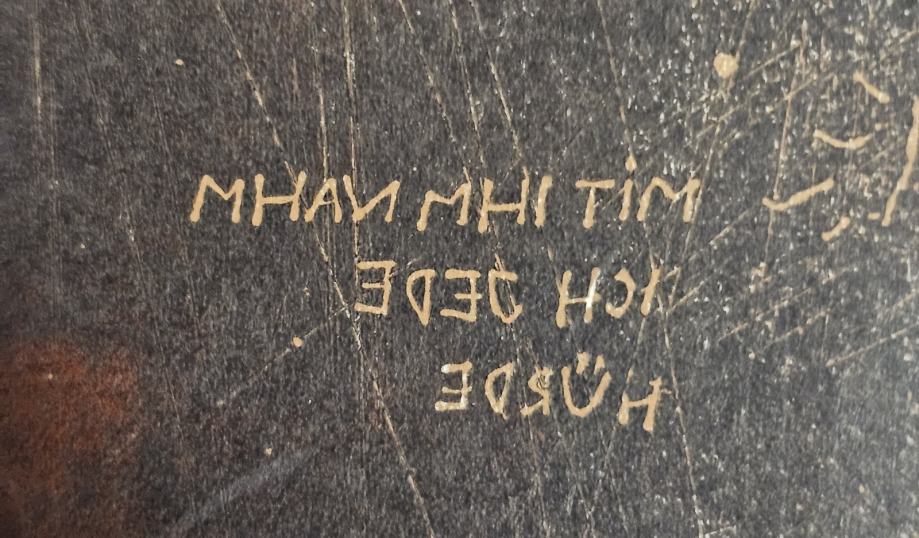 MIT IHM NAHM
ICH JEDE
HÜRDE